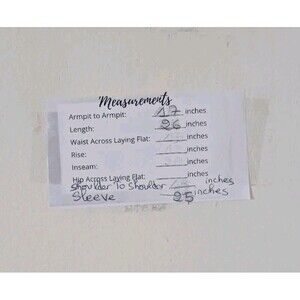 Measurements
Armpit to Armpit: 17 inches
Length: 26 inches
Waist Across Laying Flat: ______inches
Rise: ______inches
Inseam: ______inches
Hip Across Laying Flat: ______inches
Shoulder To Shoulder inches
Sleeve 25 inches